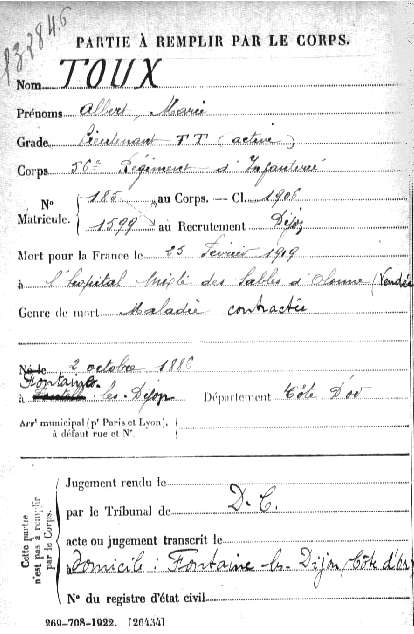 132846
PARTIE À REMPLIR PAR LE CORPS.
Nom TOUX
Prénoms Albert, Marie
Grade Lieutenant TT (active)
Corps 56e Régiment d'Infanterie
N° Matricule. 185 au Corps. — Cl. 1906
1599 au Recrutement Dijon
Mort pour la France le 23 Février 1919
à l'hôpital Mixte des Sables d'Olonne (Vendée
Genre de mort Maladie contractée
Né le 2 octobre 1886
à Fontaine les-Dijon Département Côte D'or
Arrt municipal (pr Paris et Lyon),
à défaut rue et N°.
Cette partie n'est pas à remplir par le Corps.
Jugement rendu le
par le Tribunal de D.C.
acte ou jugement transcrit le
Domicile : Fontaine les-Dijon (Côte d'or)
N° du registre d'état civil
269-708-1922. [26434]